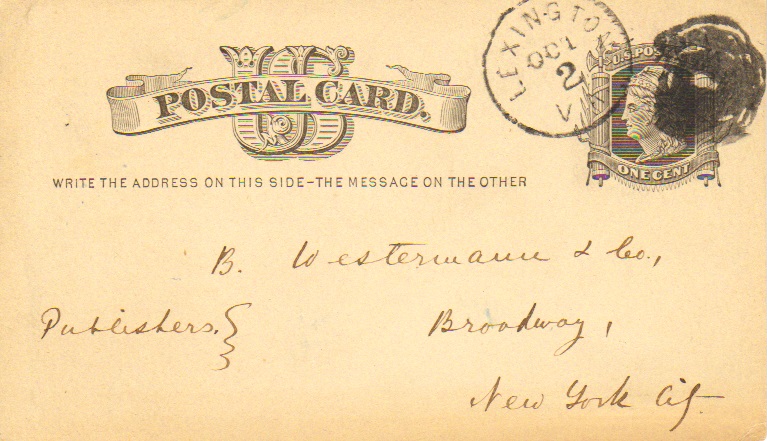 US
POSTAL CARD.
WRITE THE ADDRESS ON THIS SIDE–THE MESSAGE ON THE OTHER
LEXINGTON
OCT
2
VA
U.S. POSTAGE
ONE CENT
B. Westermann & Co.,
Publishers. Broadway,
New York City